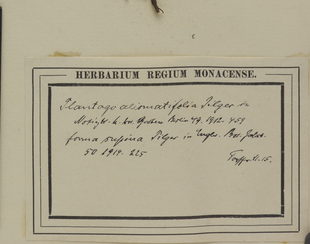 HERBARIUM REGIUM MONACENSE.
Plantago alismatifolia Pilger in
Notizbl. k. bot. Gartens Berlin 1912. 459
forma supina Pilger in Engl. Bot. Jahrb.
50 1914. 225